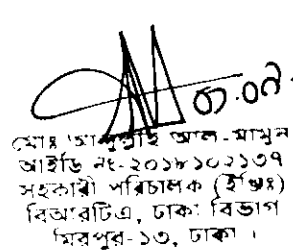 ০১.০৭.
মোঃ আব্দুল্লাহ আল-মামুন
আইডি নং-২০১৮১০২১৩৭
সহকারী পরিচালক (ইঞ্জিঃ)
বিআরটিএ, ঢাকা বিভাগ
মিরপুর-১৩, ঢাকা ।